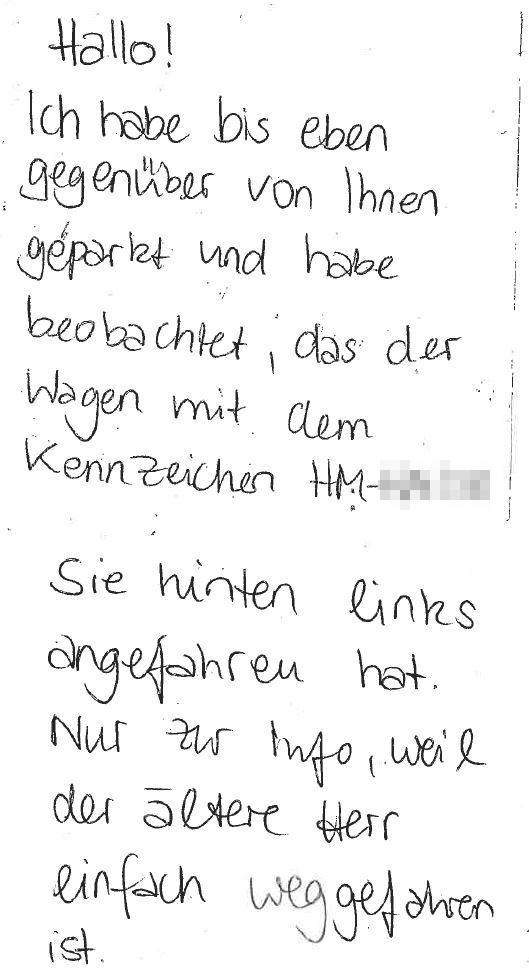 Hallo!
Ich habe bis eben
gegenüber von Ihnen
geparkt und habe
beobachtet, das der
Wagen mit dem
Kennzeichen HM-
Sie hinten links
angefahren hat.
Nur zur Info, weil
der ältere Herr
einfach weggefahren
ist.